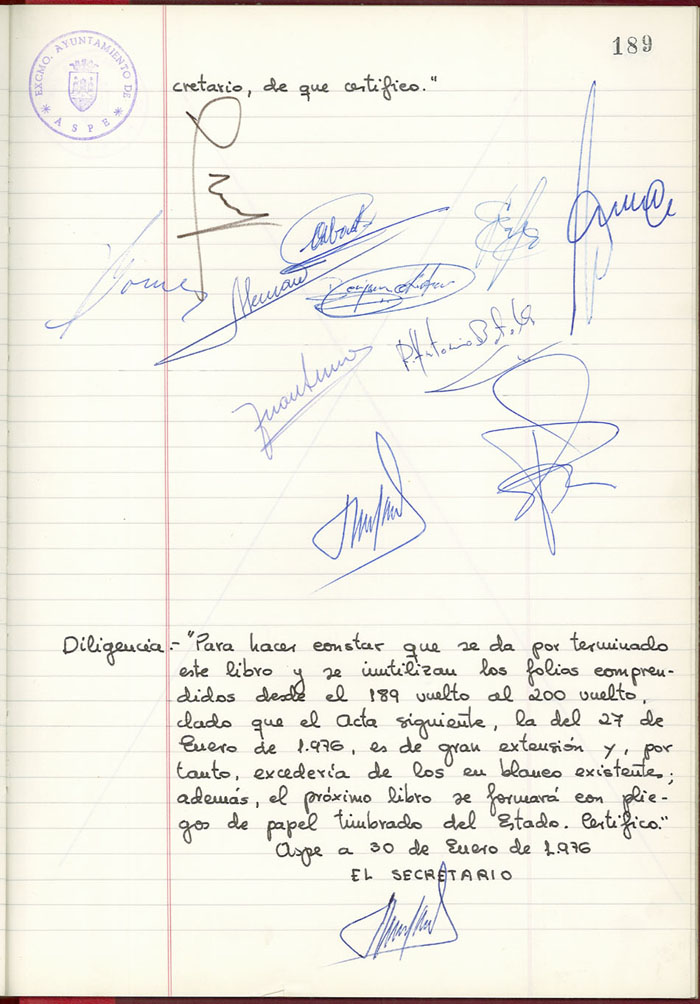 189
EXCMO. AYUNTAMIENTO DE
* ASPE *
cretario, de que certifico."
Diligencia.- "Para hacer constar que se da por terminado
este libro y se inutilizan los folios compren-
didos desde el 189 vuelto al 200 vuelto,
dado que el Acta siguiente, la del 27 de
Enero de 1.976, es de gran extensión y, por
tanto, excedería de los en blanco existentes;
además, el próximo libro se formará con plie-
gos de papel timbrado del Estado. Certifico."
Aspe a 30 de Enero de 1.976
EL SECRETARIO